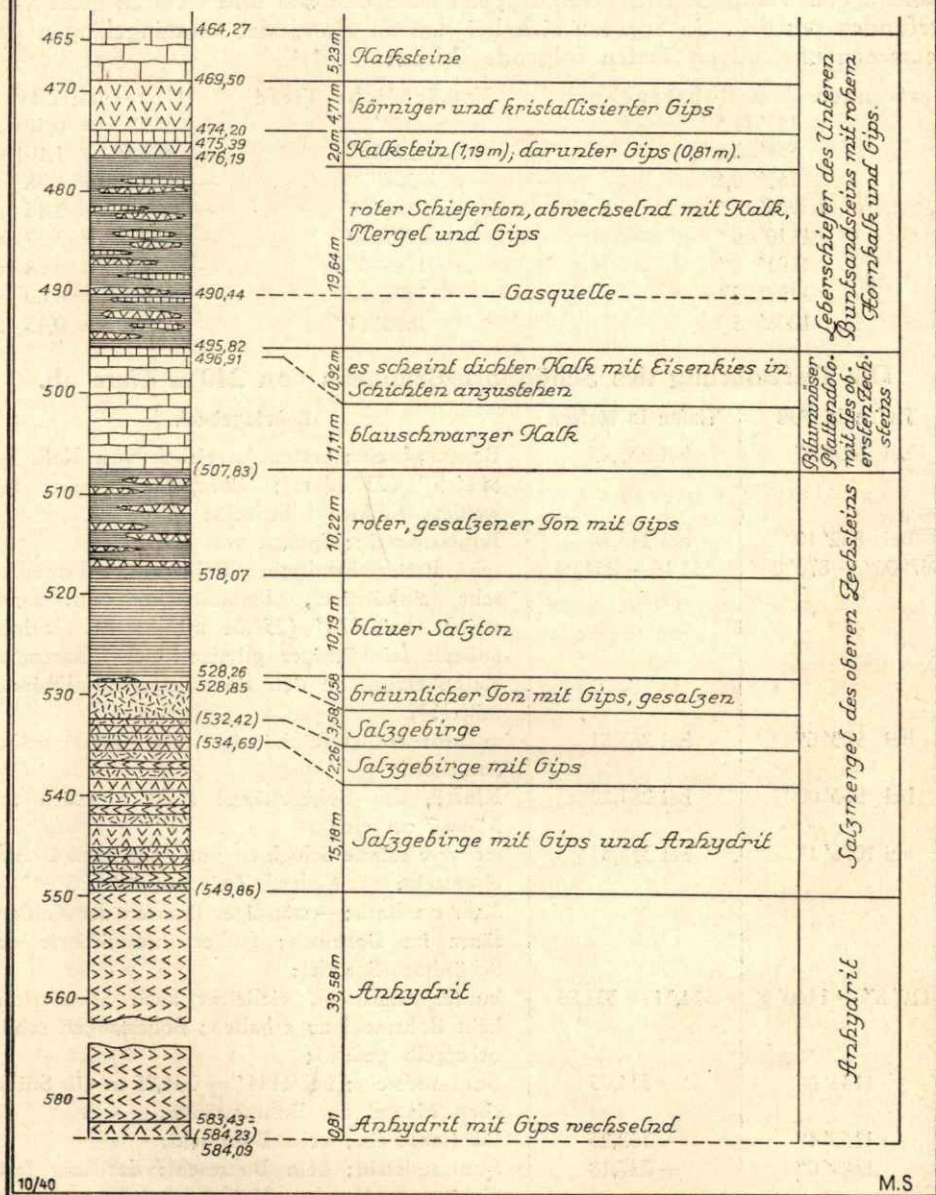 465
470
480
490
500
510
520
530
540
550
560
580
464,27
469,50
474,20
475,39
476,19
490,44
495,82
496,91
(507,83)
518,07
528,26
528,85
(532,42)
(534,69)
(549,86)
583,43=
(584,23)
584,09
5,23m
4,71m
2,0m
19,64m
0,92m
11,11m
10,22m
10,19m
0,58
3,58
2,26
15,18m
33,58m
0,81
Kalksteine
körniger und kristallisierter Gips
Kalkstein (1,19m); darunter Gips (0,81m).
roter Schieferton, abwechselnd mit Kalk,
Mergel und Gips
Gasquelle
es scheint dichter Kalk mit Eisenkies in
Schichten anzustehen
blauschwarzer Kalk
roter, gesalzener Ton mit Gips
blauer Salzton
bräunlicher Ton mit Gips, gesalzen
Salzgebirge
Salzgebirge mit Gips
Salzgebirge mit Gips und Anhydrit
Anhydrit
Anhydrit mit Gips wechselnd
Leberschiefer des Unteren
Buntsandsteins mit rohem
Hornkalk und Gips.
Bituminöser
Plattendolo-
mit des ob-
ersten Zech-
steins
Salzmergel des oberen Zechsteins
Anhydrit
10/40
M.S